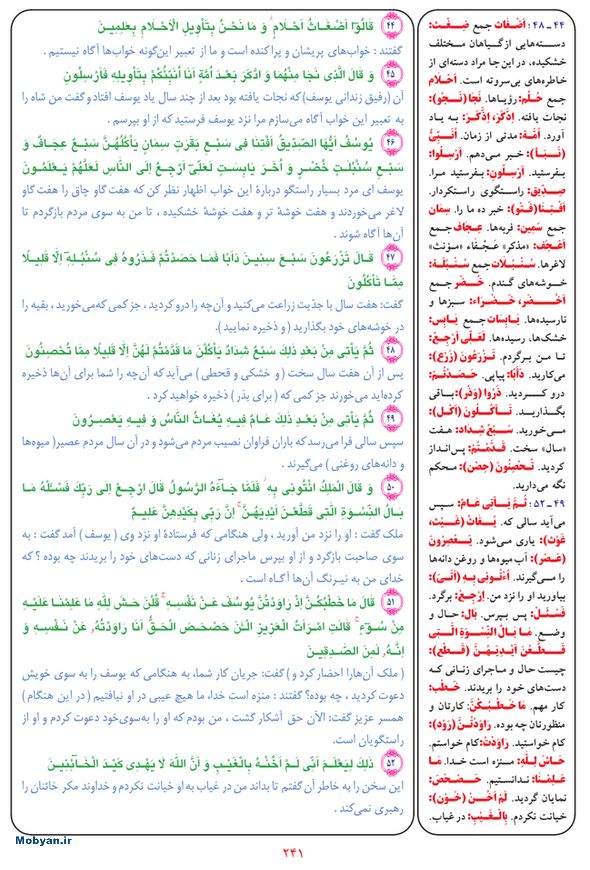 ۴۴ـ۴۸: اَضْغاث جمع ضِغْث:
دسته‌هایی ازگیاهان مختلف
خشکیده، در این‌جا مراد دسته‌ای از
خاطره‌های بی‌سروته است. اَحْلام
جمع حُلْم: رؤیاها. نَجا(نَجْو):
نجات یافته. اِدَّکَرَ، اِذَّکَرَ: به یاد
آورد. اُمَّة: مدتی از زمان. اُنَبِّئُ
(نَبَأ): خبر می‌دهم. اَرْسِلُوا:
بفرستید. اَرْسِلُونِ: بفرستید مرا.
صِدّیق: راستگوی راستکردار.
اَفْتِنا(فَتْو): خبر ده ما را. سِمان
جمع سَمین: فربه‌ها. عِجاف جمع
اَعْجَف: «مذکر» عَجْفاء «مؤنث»
لاغرها. سُنْبُلات جمع سُنْبُلَة:
خوشه‌های گندم. خُضْر جمع
اَخْضَر، خَضْراء: سبزها و
نارسیده‌ها. یابِسات جمع یابِس:
خشک‌ها، رسیده‌ها. لَعَلّی اَرْجِعُ:
تا من برگردم. تَزْرَعُونَ (زَرْع):
می‌کارید. دَأَبًا: پیاپی. حَصَدْتُمْ:
درو کردید. ذَرُوا (وَذْر): باقی
بگذارید. تَأْکُلُونَ (اَکْل):
می‌خورید. سَبْعٌ شِداد: هفت
«سال» سخت. قَدَّمْتُمْ: پس‌انداز
کردید. تُحْصِنُونَ (حِصْن): محکم
نگه می‌دارید.
۴۹ـ۵۲: ثُمَّ یَأْتی عامٌ: سپس
می‌آید سالی که. یُغاثُ (غَیْث،
غَوْث): یاری می‌شود. یَعْصِرُونَ
(عَصْر): آب میوه‌ها و روغن دانه‌ها
را می‌گیرند. اُءْتُونی بِهِ (اَتْی):
بیاورید او را نزد من. اِرْجِعْ: برگرد.
فَسْئَلْ: پس بپرس. بال: حال و
وضع. ما بالُ النِّسْوَةِ الّٰتی
قَطَّعْنَ اَیْدِیَهُنَّ (قَطْع):
چیست حال و ماجرای زنانی که
دست‌های خود را بریدند. خَطْب:
کار مهم. ما خَطْبُکُنَّ: کارتان و
منظورتان چه بوده. راوَدْتُنَّ (رَوْد):
کام خواستید. راوَدْتُ: کام خواستم.
حاشَ لِلّٰهِ: منزه است خدا. ما
عَلِمْنا: ندانستیم. حَصْحَصَ:
نمایان گردید. لَمْ اَخُنْ (خَوْن):
خیانت نکردم. بِالْغَیْبِ: در غیاب.
۴۴ قالُوٓا اَضْغاثُ اَحْلامٍ ۖ وَ ما نَحْنُ بِتَأْویلِ الْاَحْلامِ بِعٰلِمینَ
گفتند : خواب‌های پریشان و پراکنده است و ما از تعبیر این‌گونه خواب‌ها آگاه نیستیم .
۴۵ وَ قالَ الَّذی نَجا مِنْهُما وَ ادَّکَرَ بَعْدَ اُمَّةٍ اَنَا اُنَبِّئُکُمْ بِتَأْویلِهِ فَاَرْسِلُونِ
آن (رفیق زندانی یوسف) که نجات یافته بود بعد از چند سال یاد یوسف افتاد و گفت من شاه را
به تعبیر این خواب آگاه می‌سازم مرا نزد یوسف فرستید که از او بپرسم .
۴۶ یُوسُفُ اَیُّهَا الصِّدّیقُ اَفْتِنا فی سَبْعِ بَقَرٰتٍ سِمانٍ یَأْکُلُهُنَّ سَبْعٌ عِجافٌ وَ
سَبْعِ سُنْبُلٰتٍ خُضْرٍ وَ اُخَرَ یابِسٰتٍ لَعَلّیٓ اَرْجِعُ اِلَی النّاسِ لَعَلَّهُمْ یَعْلَمُونَ
یوسف ای مرد بسیار راستگو دربارهٔ این خواب اظهار نظر کن که هفت گاو چاق را هفت گاو
لاغر می‌خوردند و هفت خوشهٔ تر و هفت خوشهٔ خشکیده ، تا من به سوی مردم بازگردم تا
آن‌ها آگاه شوند .
۴۷ قالَ تَزْرَعُونَ سَبْعَ سِنینَ دَاَبًا فَما حَصَدْتُمْ فَذَرُوهُ فی سُنْبُلِهِٓ اِلّا قَلیلًا
مِمّا تَأْکُلُونَ
گفت: هفت سال با جدّیت زراعت می‌کنید و آن‌چه را درو کردید ، جز کمی‌که می‌خورید ، بقیه را
در خوشه‌های خود بگذارید ( و ذخیره نمایید ).
۴۸ ثُمَّ یَأْتی مِنْ بَعْدِ ذٰلِکَ سَبْعٌ شِدادٌ یَأْکُلْنَ ما قَدَّمْتُمْ لَهُنَّ اِلّا قَلیلًا مِمّا تُحْصِنُونَ
پس از آن هفت سال سخت ( و خشکی و قحطی ) می‌آید که آن‌چه را شما برای آن‌ها ذخیره
کرده‌اید می‌خورند جز کمی که ( برای بذر ) ذخیره خواهید کرد .
۴۹ ثُمَّ یَأْتی مِنْ بَعْدِ ذٰلِکَ عامٌ فیهِ یُغاثُ النّاسُ وَ فیهِ یَعْصِرُونَ
سپس سالی فرا می‌رسد که باران فراوان نصیب مردم می‌شود و در آن سال مردم عصیر( میوه‌ها
و دانه‌های روغنی ) می‌گیرند .
۵۰ وَ قالَ الْمَلِکُ ائْتُونی بِهِ ۖ فَلَمّا جآءَهُ الرَّسُولُ قالَ ارْجِعْ اِلٰی رَبِّکَ فَسْئَلْهُ ما
بالُ النِّسْوَةِ الّٰتی قَطَّعْنَ اَیْدِیَهُنَّ ۚ اِنَّ رَبّی بِکَیْدِهِنَّ عَلیمٌ
ملک گفت : او را نزد من آورید ، ولی هنگامی که فرستادهٔ او نزد وی ( یوسف ) آمد گفت : به
سوی صاحبت بازگرد و از او بپرس ماجرای زنانی که دست‌های خود را بریدند چه بوده ؟ که
خدای من به نیرنگ آن‌ها آگاه است .
۵۱ قالَ ما خَطْبُکُنَّ اِذْ راوَدْتُنَّ یُوسُفَ عَنْ نَفْسِهِ ۚ قُلْنَ حٰشَ لِلّٰهِ ما عَلِمْنا عَلَیْهِ
مِنْ سُوٓءٍ ۚ قالَتِ امْرَاَتُ الْعَزیزِ الْـٰٔنَ حَصْحَصَ الْحَقُّ اَنَا راوَدْتُهُ عَنْ نَفْسِهِ وَ
اِنَّهُ لَمِنَ الصّٰدِقینَ
( ملک آن‌هارا احضار کرد و ) گفت: جریان کار شما، به هنگامی که یوسف را به سوی خویش
دعوت کردید ، چه بوده؟ گفتند : منزه است خدا، ما هیچ عیبی در او نیافتیم ( در این هنگام )
همسر عزیز گفت: الآن حق آشکار گشت ، من بودم که او را به‌سوی‌خود دعوت کردم و او از
راستگویان است.
۵۲ ذٰلِکَ لِیَعْلَمَ اَنّی لَمْ اَخُنْهُ بِالْغَیْبِ وَ اَنَّ اللّٰهَ لا یَهْدی کَیْدَ الْخآئِنینَ
این سخن را به خاطر آن گفتم تا بداند من در غیاب به او خیانت نکردم و خداوند مکر خائنان را
رهبری نمی‌کند .
Mobyan.ir
۲۴۱